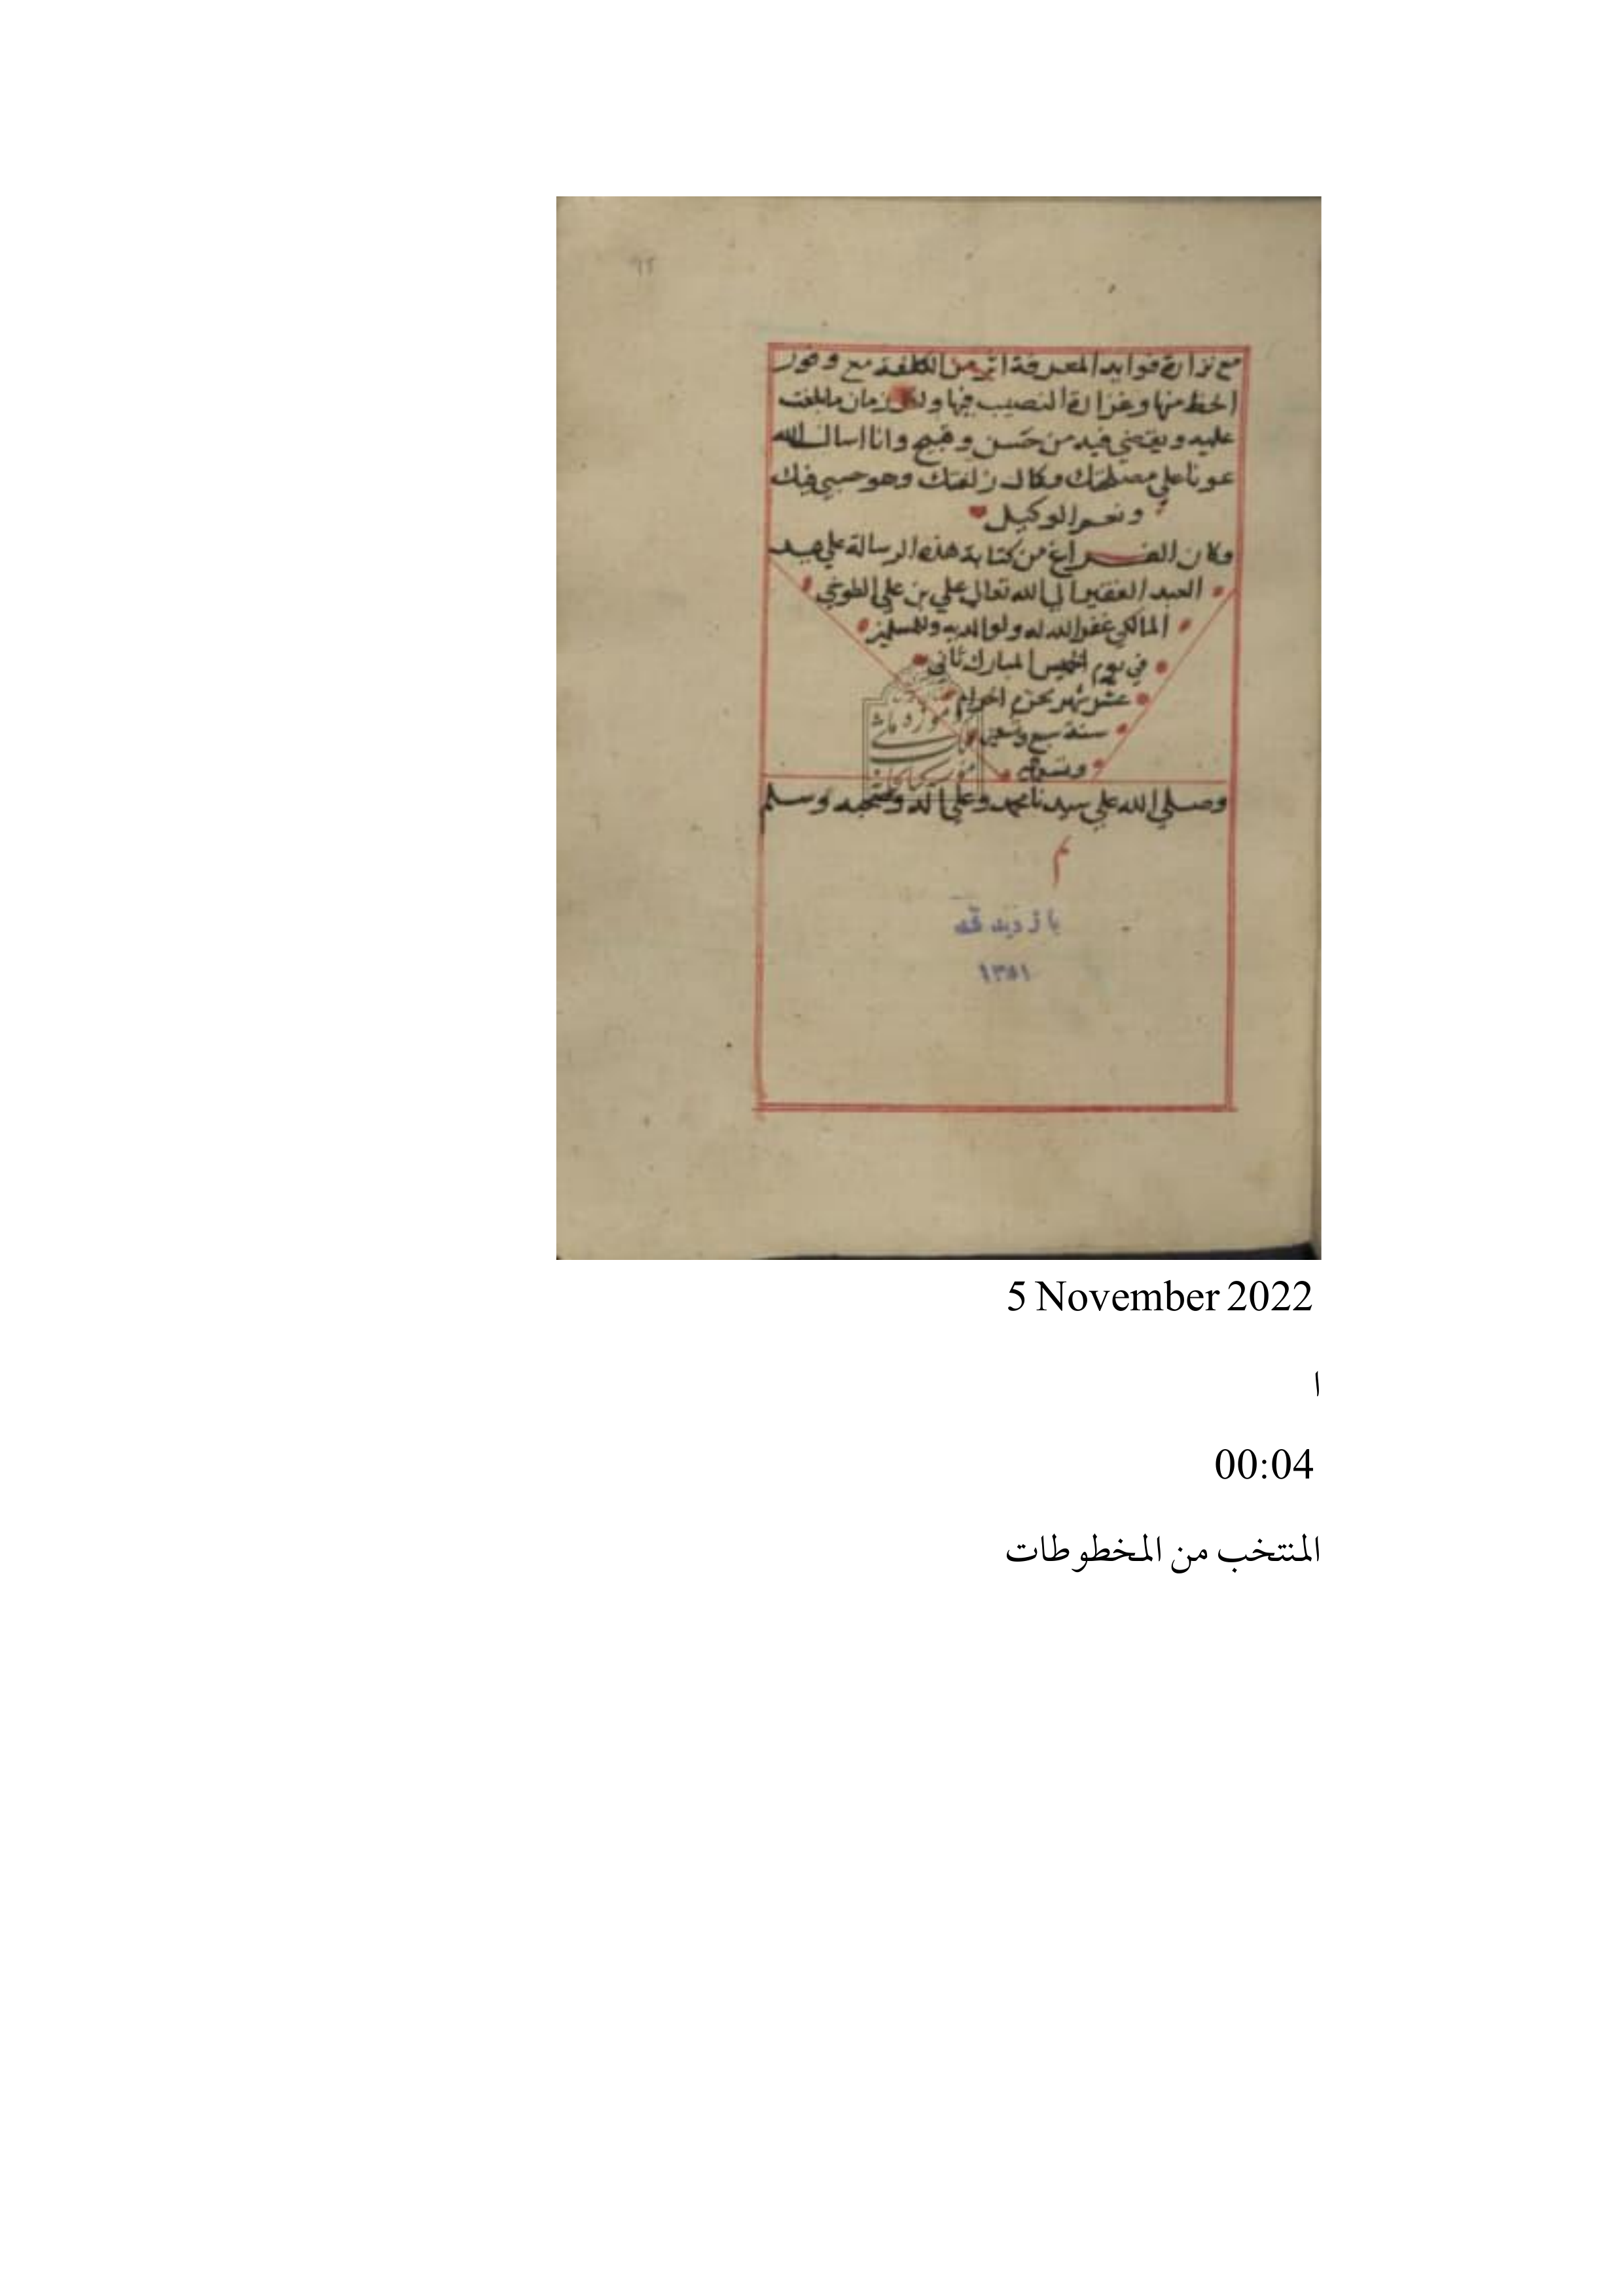 مع نزارة فوايد المعرفة اثر من الكلفة مع وفور
الحظ منها وغزارة النصيب فيها ولكل زمان ما يلفت
عليه ويقتضي فيه من حسن وقبيح وانا اسال الله
عونا على مصلحتك وكمال زلفتك وهو حسبي فيك
ونعم الوكيل
وكان الفراغ من كتابة هذه الرسالة على يد
العبد الفقير الي الله تعالي علي بن علي الطوخي
المالكي غفر الله له ولوالديه وللمسلمين
في يوم الخميس المبارك ثاني
عشر شهر محرم الحرام
سنة سبع وتسعين
وصلي الله علي سيدنا محمد وعلي اله وصحبه وسلم
م
بازدید شد
۱۳۵۱
5 November 2022
ا
00:04
المنتخب من المخطوطات